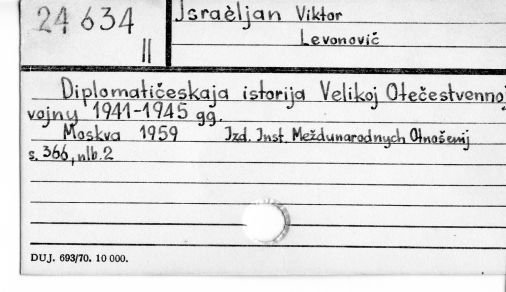 24 634
II
Israèljan Viktor
Levonovič
Diplomatičeskaja istorija Velikoj Otečestvennoj
vojny 1941-1945 gg.
Moskva 1959 Izd. Inst. Meždunarodnych Otnošenij
s. 366, nlb. 2
DUJ. 693/70. 10 000.